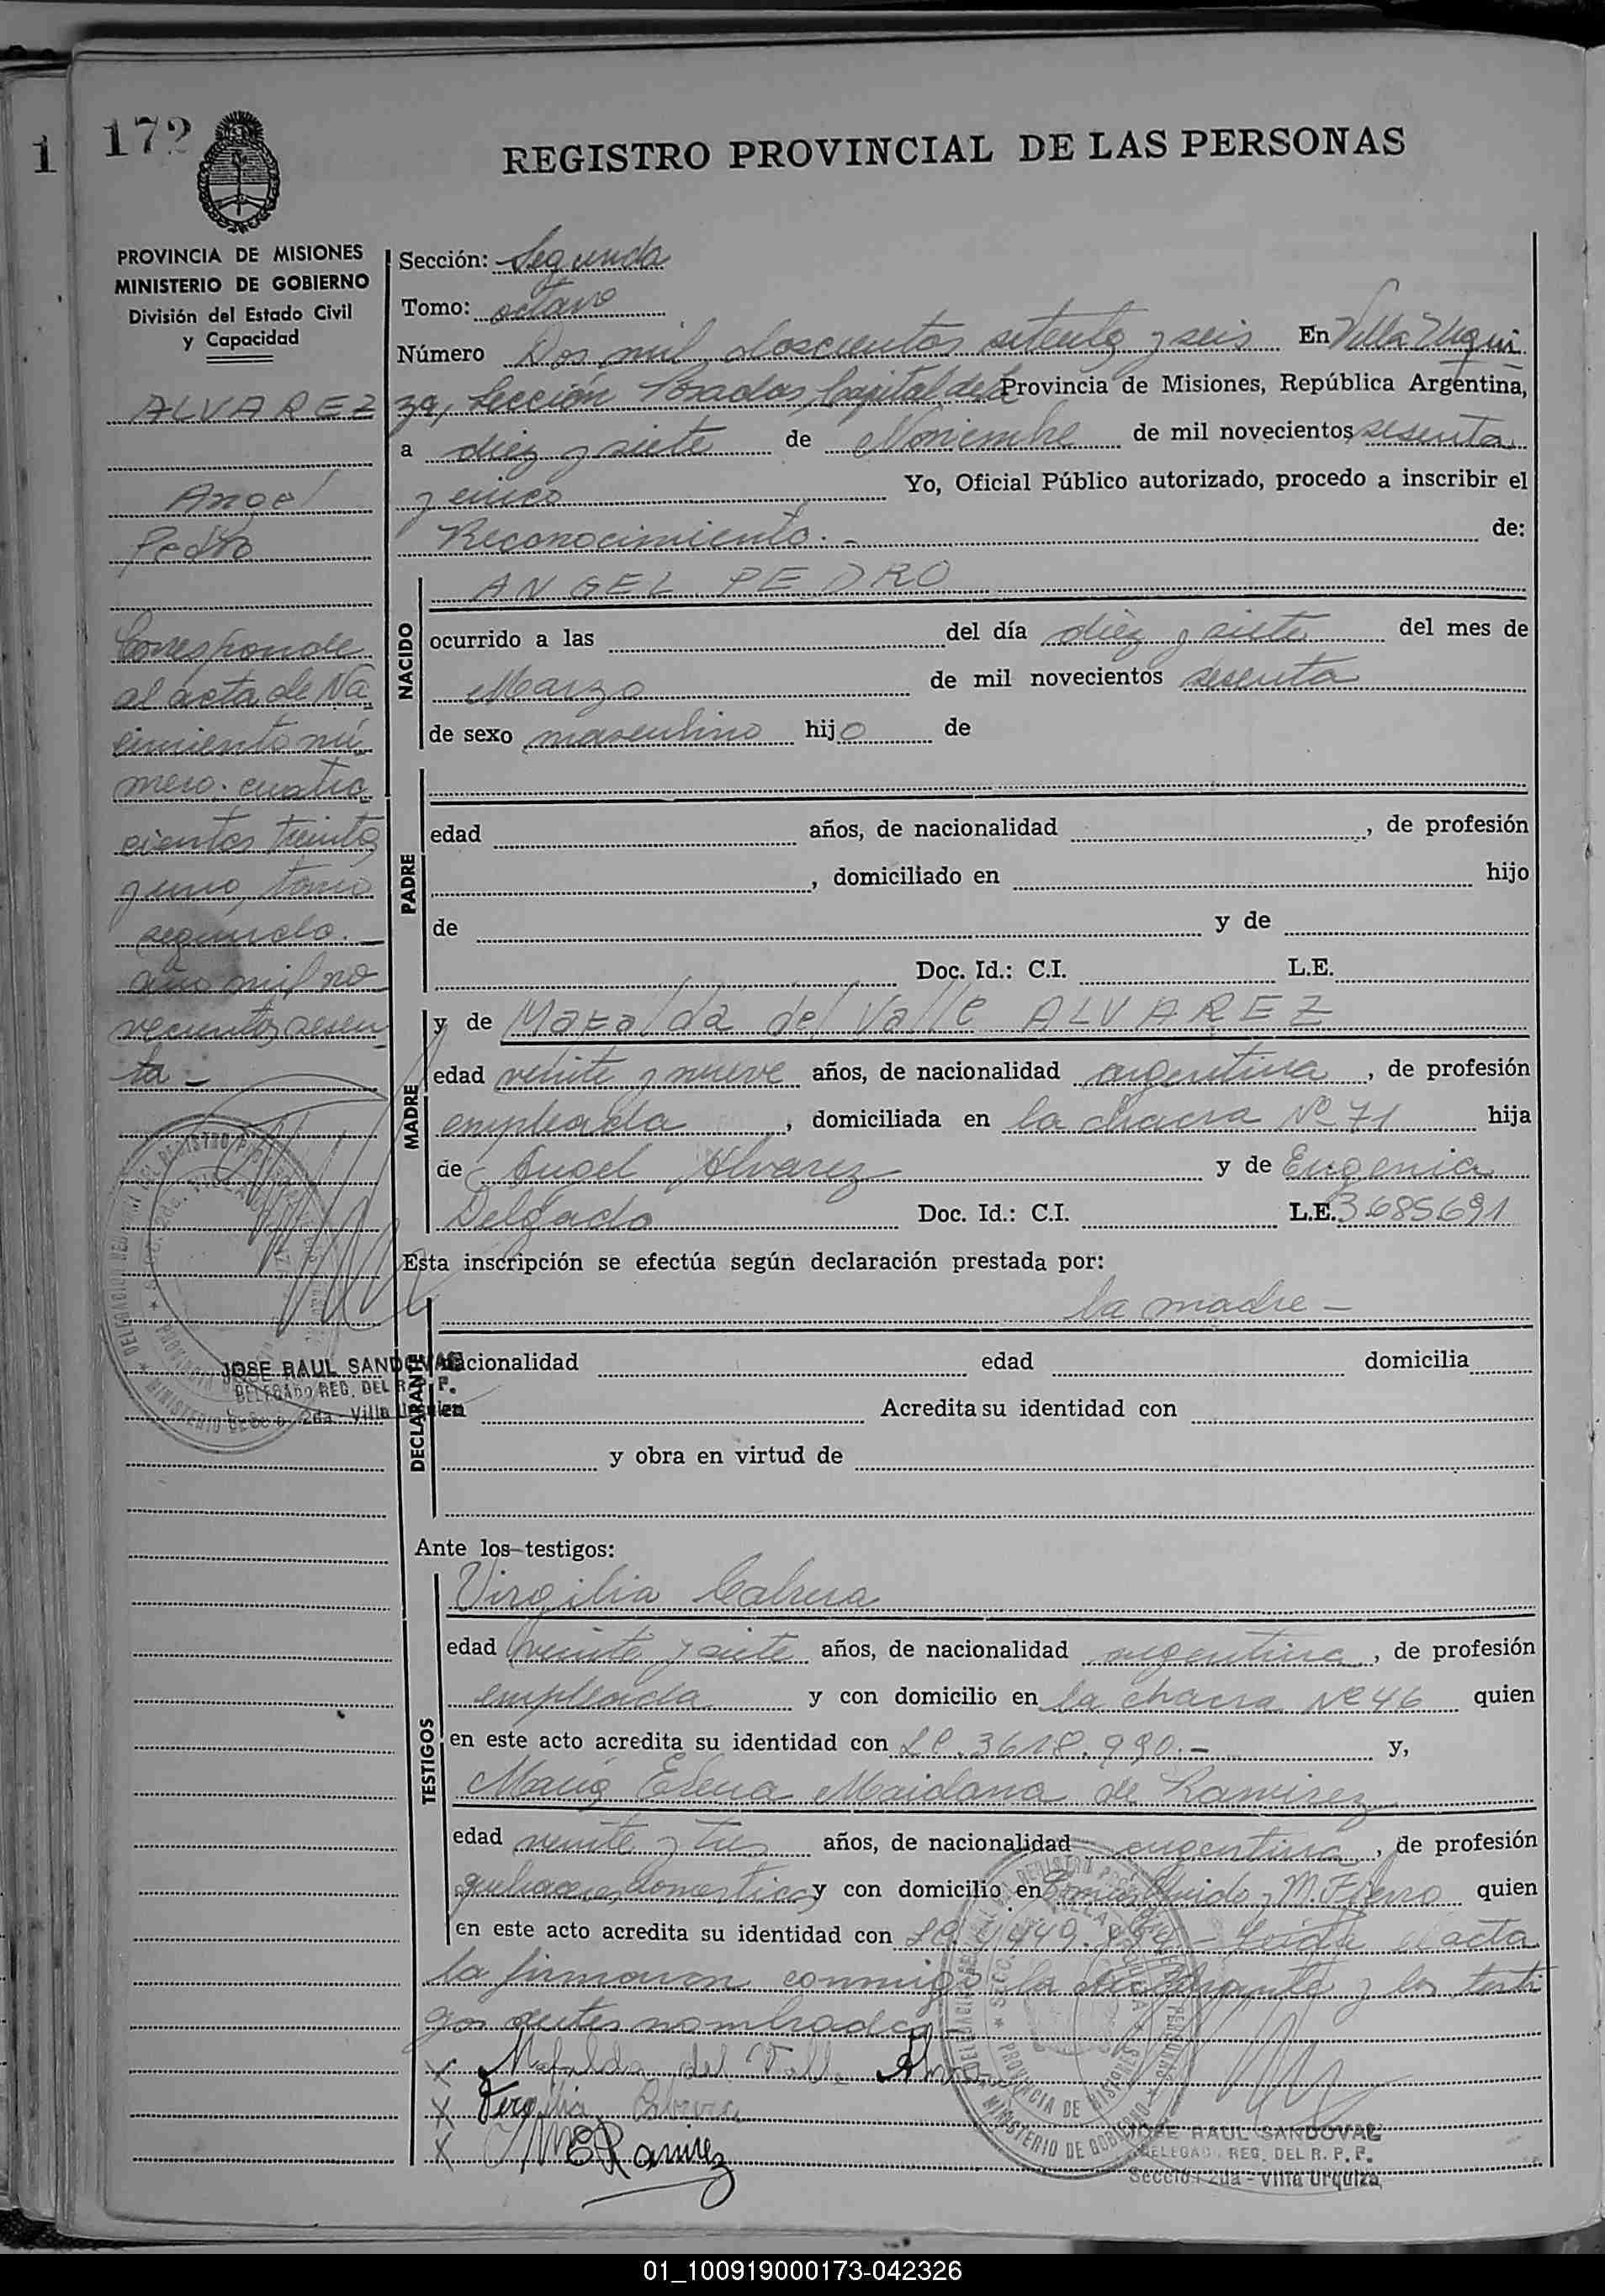 1
172
REGISTRO PROVINCIAL DE LAS PERSONAS
PROVINCIA DE MISIONES
MINISTERIO DE GOBIERNO
División del Estado Civil
y Capacidad
ALVAREZ
Angel
Pedro
Corresponde
al acta de Na
cimiento nú
mero. cuatro
cientos treinta
y uno, tomo
segundo.
año mil no
vecientos sesen
ta -
JOSE RAUL SANDOVAL
DELEGADO REG. DEL R. P. P.
2da - Villa Urquiza
Sección: Segunda
Tomo: octavo
Número Dos mil doscientos setenta y seis En Villa Urqui
za, Sección Posadas, Capital de la Provincia de Misiones, República Argentina,
a diez y siete de Noviembre de mil novecientos sesenta
y cinco Yo, Oficial Público autorizado, procedo a inscribir el
Reconocimiento.- de:
NACIDO
ANGEL PEDRO
ocurrido a las del día diez y siete del mes de
Marzo de mil novecientos sesenta
de sexo masculino hijo de
PADRE
edad años, de nacionalidad , de profesión
, domiciliado en hijo
de y de
Doc. Id.: C.I. L.E.
MADRE
y de Mafalda del Valle ALVAREZ
edad veinte y nueve años, de nacionalidad argentina, de profesión
empleada, domiciliada en la chacra Nº 71 hija
de Angel Alvarez y de Eugenia
Delgado Doc. Id.: C.I. L.E. 3.685.691
Esta inscripción se efectúa según declaración prestada por:
DECLARANTE
la madre -
nacionalidad edad domicilia
en Acredita su identidad con
y obra en virtud de
Ante los testigos:
TESTIGOS
Virgilia Cabrera
edad veinte y siete años, de nacionalidad argentina, de profesión
empleada y con domicilio en la chacra Nº 46 quien
en este acto acredita su identidad con LC. 3618.990.- y,
María Elena Maidana de Ramirez
edad veinte y tres años, de nacionalidad argentina, de profesión
quehaceres domesticos y con domicilio en Guido y M. Fierro quien
en este acto acredita su identidad con LC. - Leída el acta
la firmaron conmigo la declarante y los testi
gos antes nombrados
X Mafalda del Valle Alvarez
X Virgilia Cabrera
X M E Ramirez
JOSE RAUL SANDOVAL
DELEGADO REG. DEL R. P. P.
Sección 2da - Villa Urquiza
01_100919000173-042326